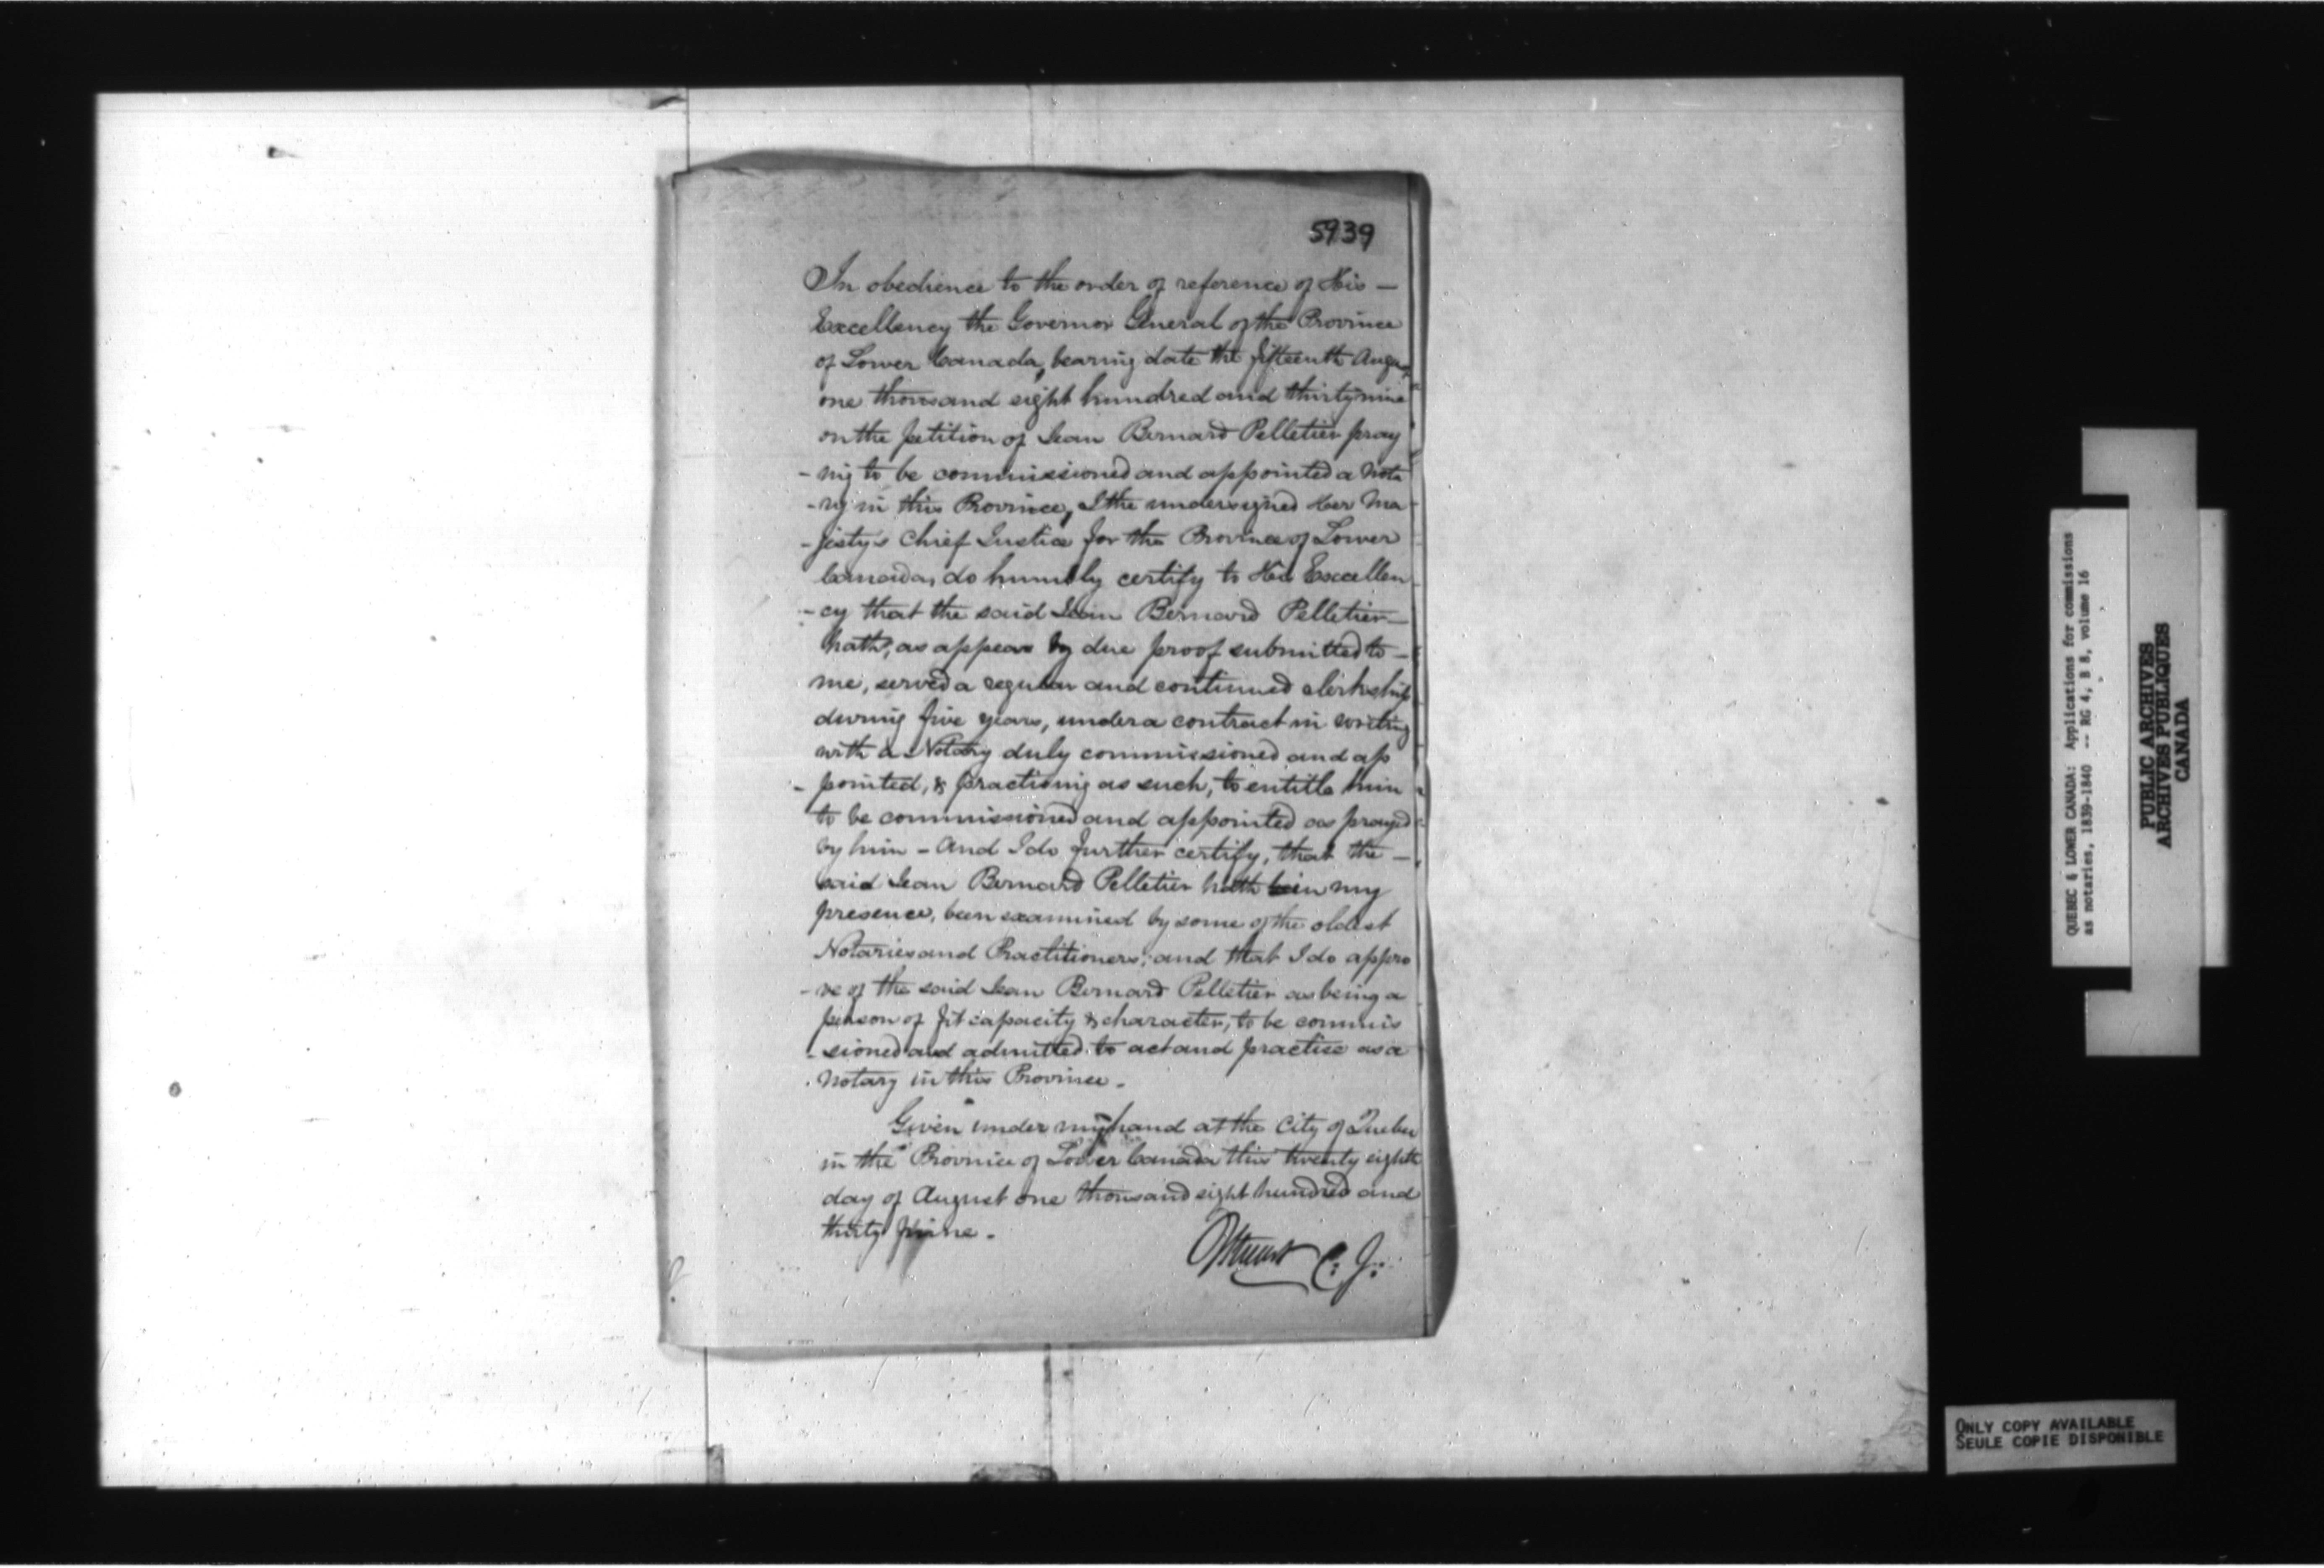 5939
In obedience to the order of reference of His —
Excellency the Governor General of the Province
of Lower Canada, bearing date the fifteenth
one thousand eight hundred and thirty nine
on the petition of Jean Bernard Pelletier pray
- ing to be commissioned and appointed a Nota
- ry in this Province, I the undersigned Her Ma
- jesty's Chief Justice for the Province of Lower
Canada, do humbly certify to His Excellen
- cy that the said Jean Bernard Pelletier —
hath, as appears by due proof submitted to —
me, served a regular and continued clerkship
during five years, under a contract in writing
with a Notary duly commissioned and ap
- pointed, & practising as such, to entitle him
to be commissioned and appointed as prayed
by him - And I do further certify, that the —
said Jean Bernard Pelletier hath in my
presence, been examined by some of the oldest
Notaries and Practitioners; and that I do appro
- ve of the said Jean Bernard Pelletier as being a
person of fit capacity & character, to be commis
- sioned and admitted to act and practise as a
Notary in this Province.
Given under my hand at the City of Quebec
in the Province of Lower Canada this twenty eighth
day of August one thousand eight hundred and
thirty nine.
J Stuart C: J:
QUEBEC & LOWER CANADA: Applications for commissions
as notaries, 1839-1840 -- RG 4, B 8, volume 16
PUBLIC ARCHIVES
ARCHIVES PUBLIQUES
CANADA
ONLY COPY AVAILABLE
SEULE COPIE DISPONIBLE